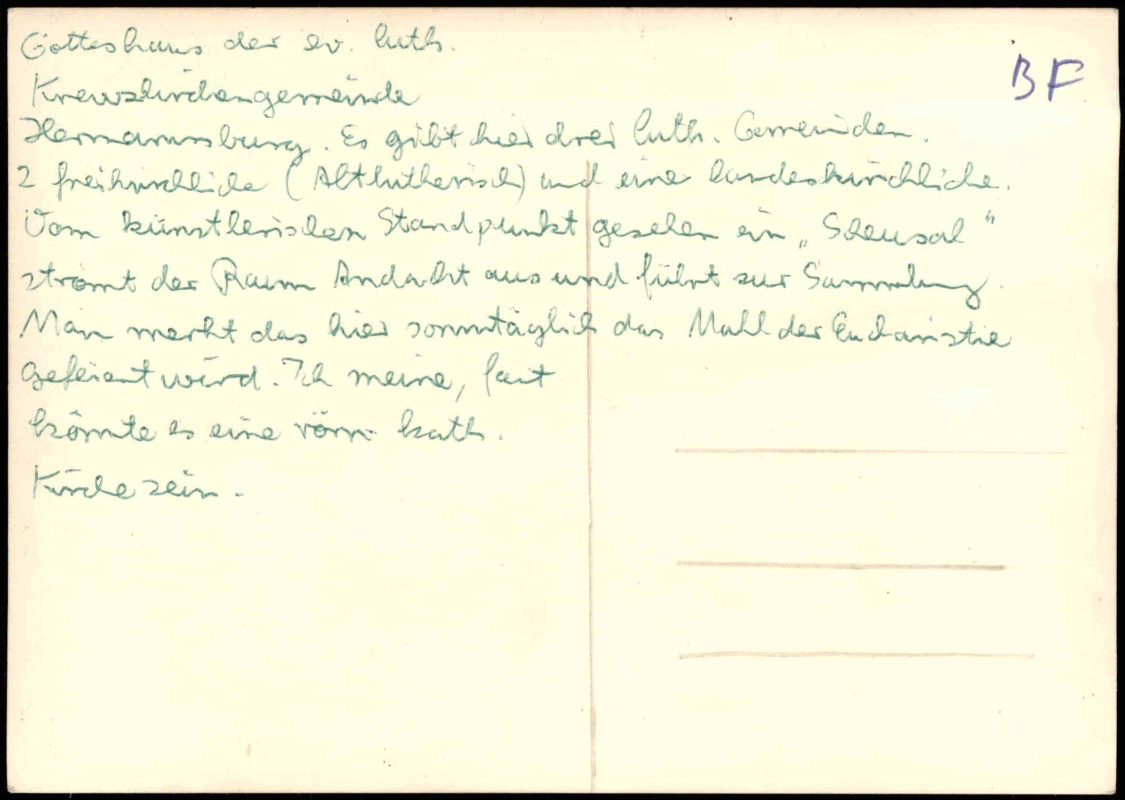 Gotteshaus der ev. luth.
BF
Kreuzkirchengemeinde
Hermannsburg. Es gibt hier drei luth. Gemeinden.
2 freikirchliche (Altlutherisch) und eine landeskirchliche.
Vom künstlerischen Standpunkt gesehen ein „Scheusal“
strömt der Raum Andacht aus und führt zur Sammlung.
Man merkt das hier sonntäglich das Mahl der Eucharistie
gefeiert wird. Ich meine, fast
könnte es eine röm. kath.
Kirche sein.